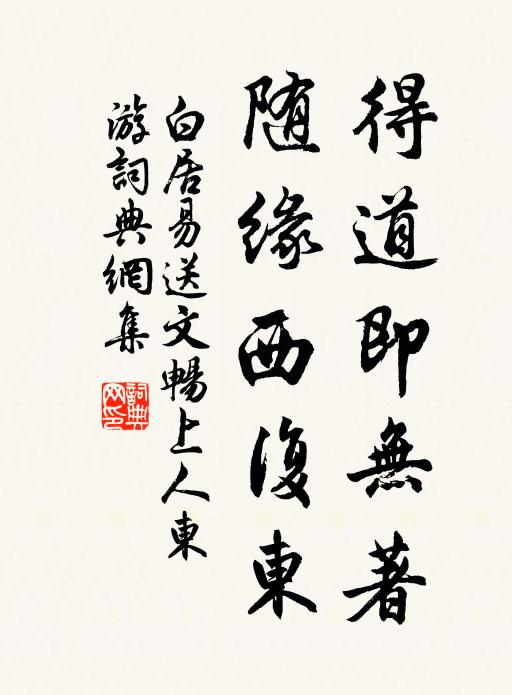 得道即無著
随緣西復東
白居易送文暢上人東
游詞典網集
詞典網印